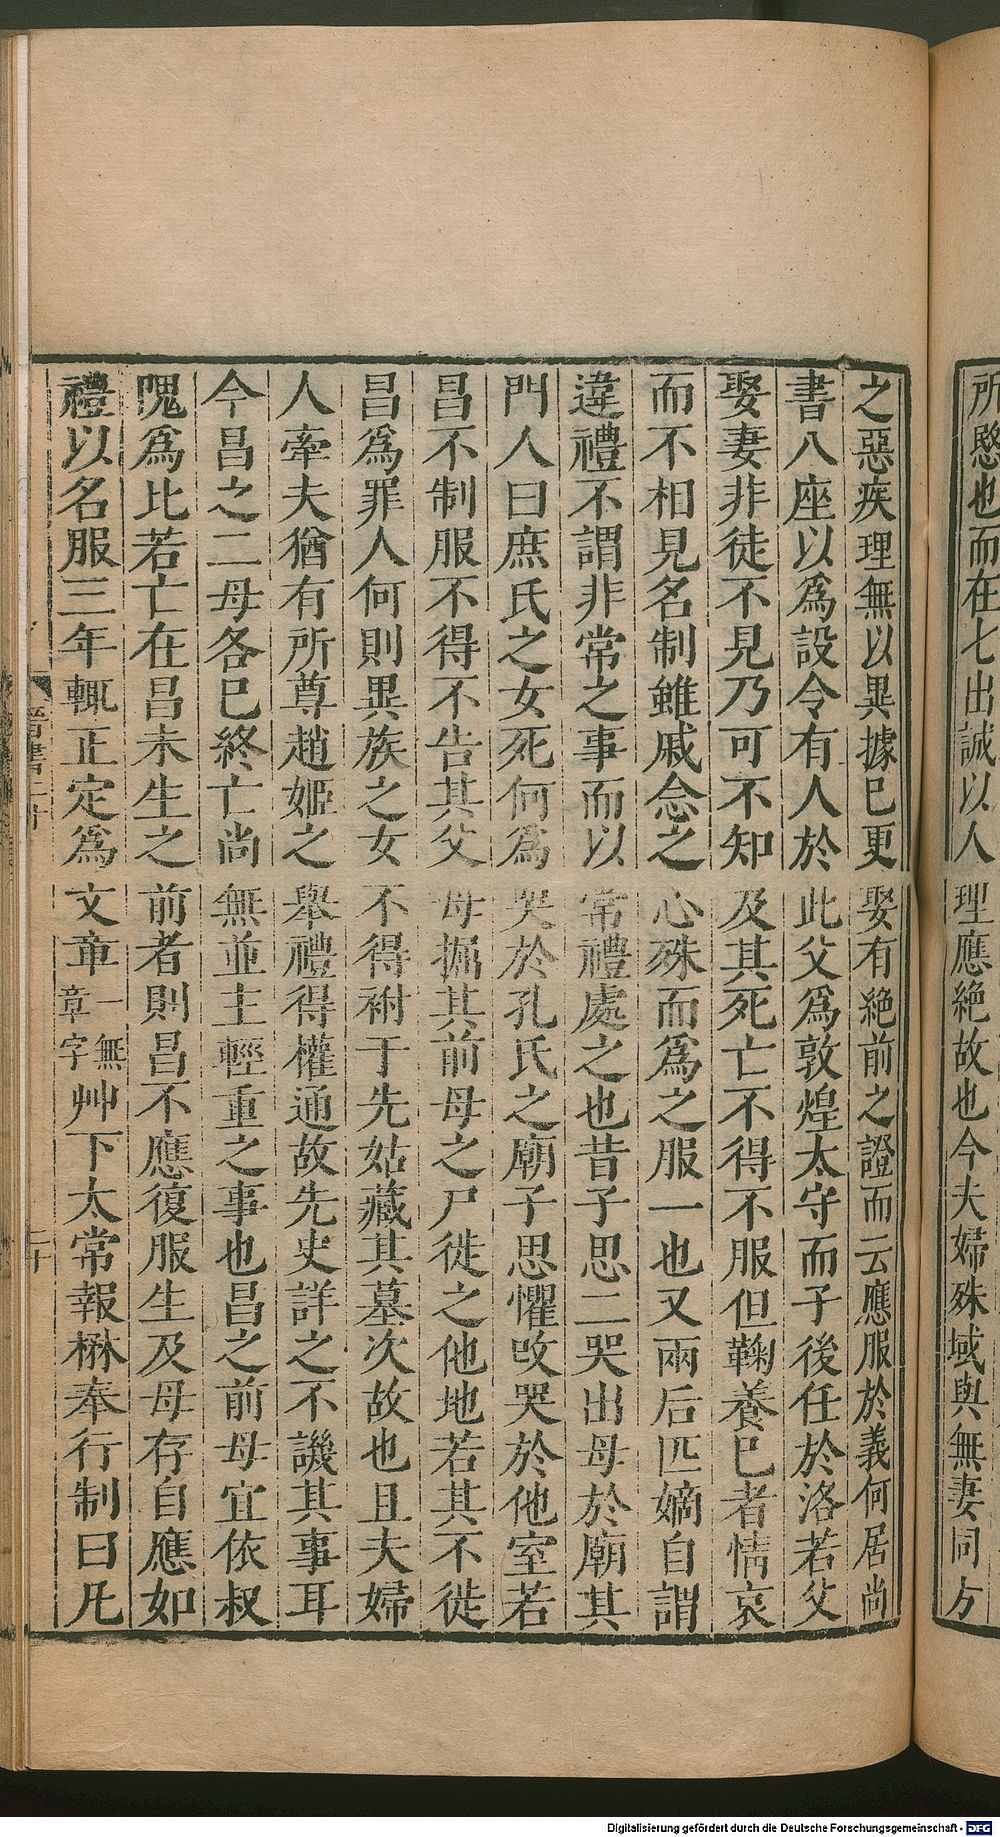 所愍也而在七出誠以人理應絶故也今夫婦殊域與無妻同方
之惡疾理無以異據已更娶有絶前之證而云應服於義何居尚
書八座以爲設令有人於此父爲敦煌太守而子後任於洛若父
娶妻非徒不見乃可不知及其死亡不得不服但鞠養已者情哀
而不相見名制雖戚念之心殊而爲之服一也又兩后匹嫡自謂
違禮不謂非常之事而以常禮處之也昔子思二哭出母於廟其
門人曰庶氏之女死何爲哭於孔氏之廟子思懼改哭於他室若
昌不制服不得不告其父母掘其前母之尸徙之他地若其不徙
昌爲罪人何則異族之女不得祔于先姑藏其墓次故也且夫婦
人牽夫猶有所尊趙姬之舉禮得權通故先史詳之不譏其事耳
今昌之二母各已終亡尚無並主輕重之事也昌之前母宜依叔
隗爲比若亡在昌未生之前者則昌不應復服生及母存自應如
禮以名服三年輒正定爲文章一無章字艸下太常報楙奉行制曰凡
晋書二十
二十
Digitalisierung gefördert durch die Deutsche Forschungsgemeinschaft - DFG